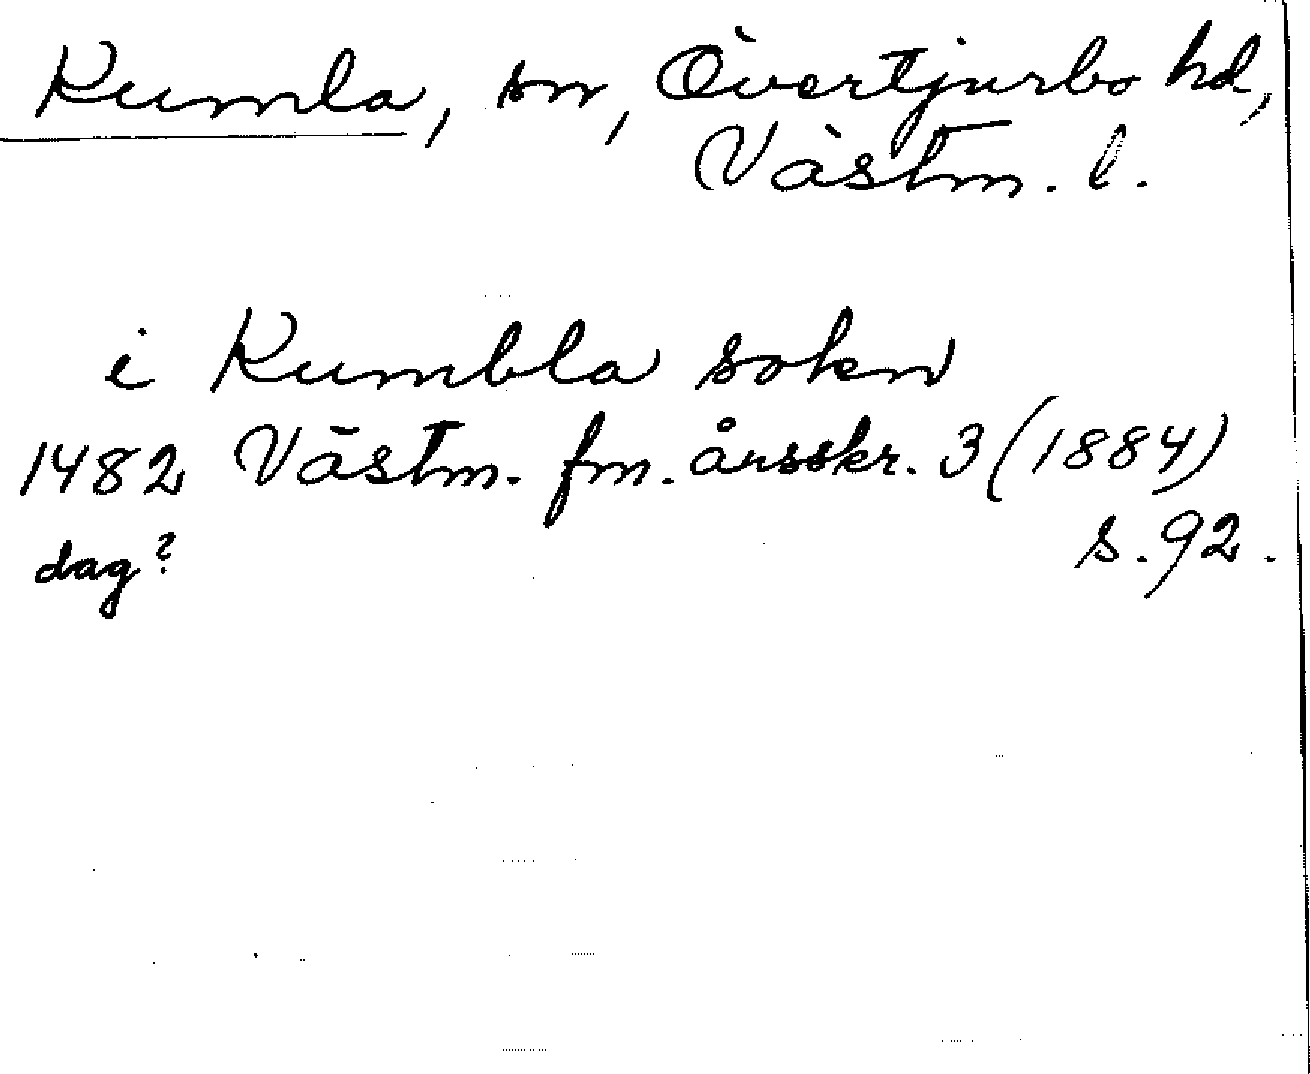 Kumla, sn, Övertjurbo hd,
Västm. l.
i Kumbla sokn
1482 Västm. fm. årsskr. 3 (1884)
dag? s. 92.